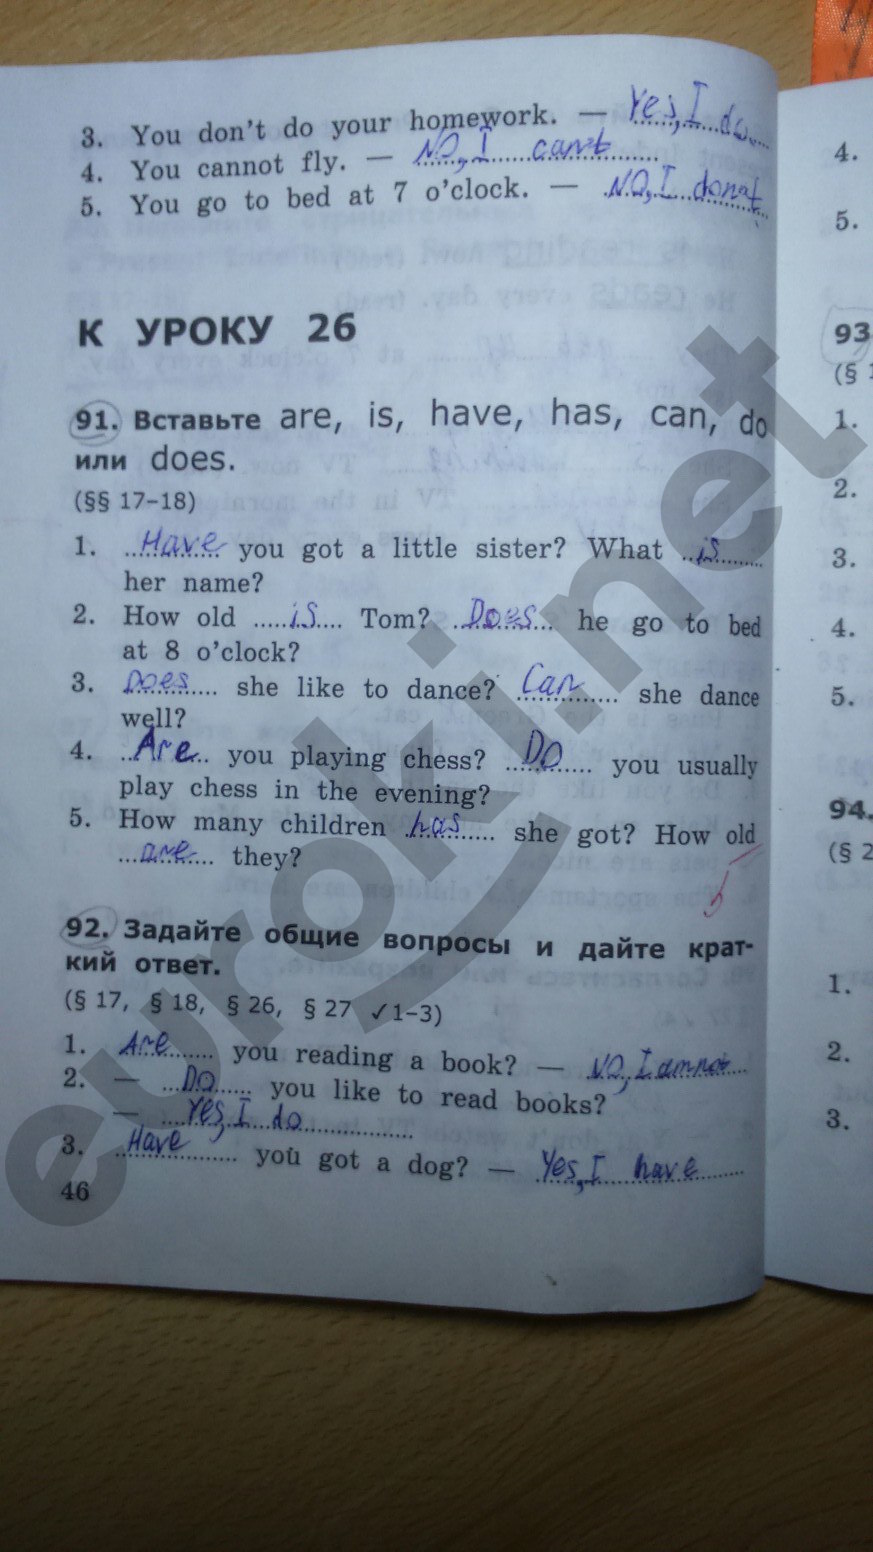 3. You don't do your homework. — Yes, I do.
4. You cannot fly. — NO, I can't
5. You go to bed at 7 o'clock. — NO, I donat
К УРОКУ 26
91. Вставьте are, is, have, has, can, do
или does.
(§§ 17–18)
1. Have you got a little sister? What is
her name?
2. How old is Tom? Does he go to bed
at 8 o'clock?
3. Does she like to dance? Can she dance
well?
4. Are you playing chess? Do you usually
play chess in the evening?
5. How many children has she got? How old
are they?
92. Задайте общие вопросы и дайте крат-
кий ответ.
(§ 17, § 18, § 26, § 27 ✓1–3)
1. Are you reading a book? — NO, I am not
2. — Do you like to read books?
— Yes, I do
3. Have you got a dog? — Yes, I have
46
4.
5.
93
(§
1.
2.
3.
4.
5.
94.
(§ 2
1.
2.
3.
eurokinet